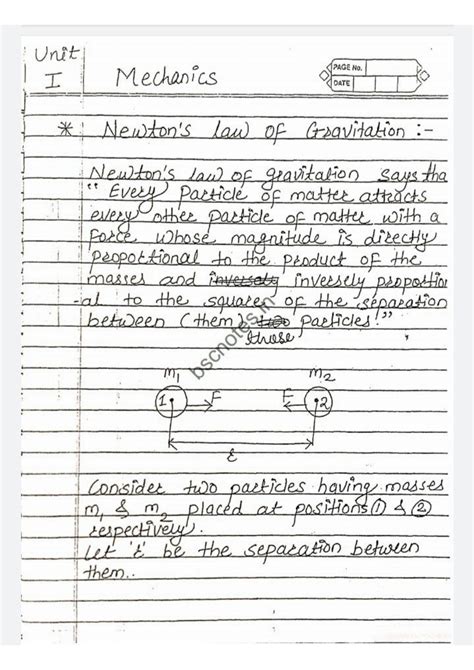 Unit
I
Mechanics
PAGE No.
DATE
* Newton's law of Gravitation :-
Newton's law of gravitation says tha
" Every Particle of matter attracts
every other particle of matter with a
Force whose magnitude is directly
propotional to the product of the
masses and inversaly inversely propotion
-al to the square of the separation
between (them) two particles."
those
bscnotes.in
m1 m2
1 F F 2
r
Consider two particles having masses
m1 & m2 placed at positions ① & ②
respectively.
Let 'r' be the separation between
them..